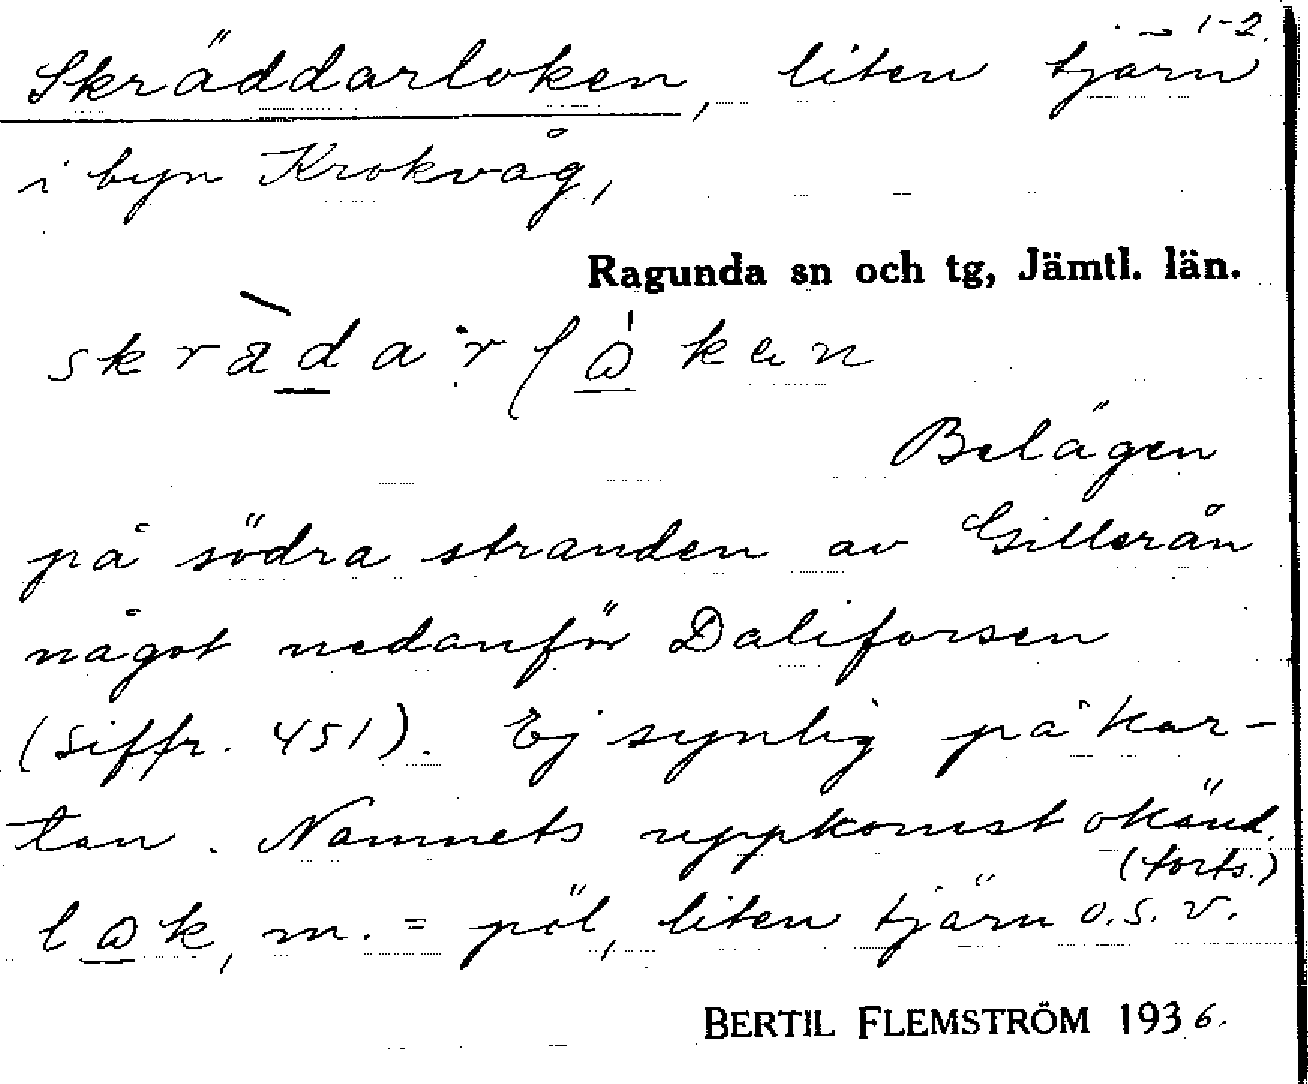 1-2.
Skräddarloken, liten tjärn
i byn Krokvåg,
Ragunda sn och tg, Jämtl. län.
Belägen
på södra stranden av Gillerån
något nedanför Daliforsen
(siffr. 451). Ej synlig på kar-
tan. Namnets uppkomst okänd.
(forts.)
lok, m. = pöl, liten tjärn o.s.v.
BERTIL FLEMSTRÖM 1936.